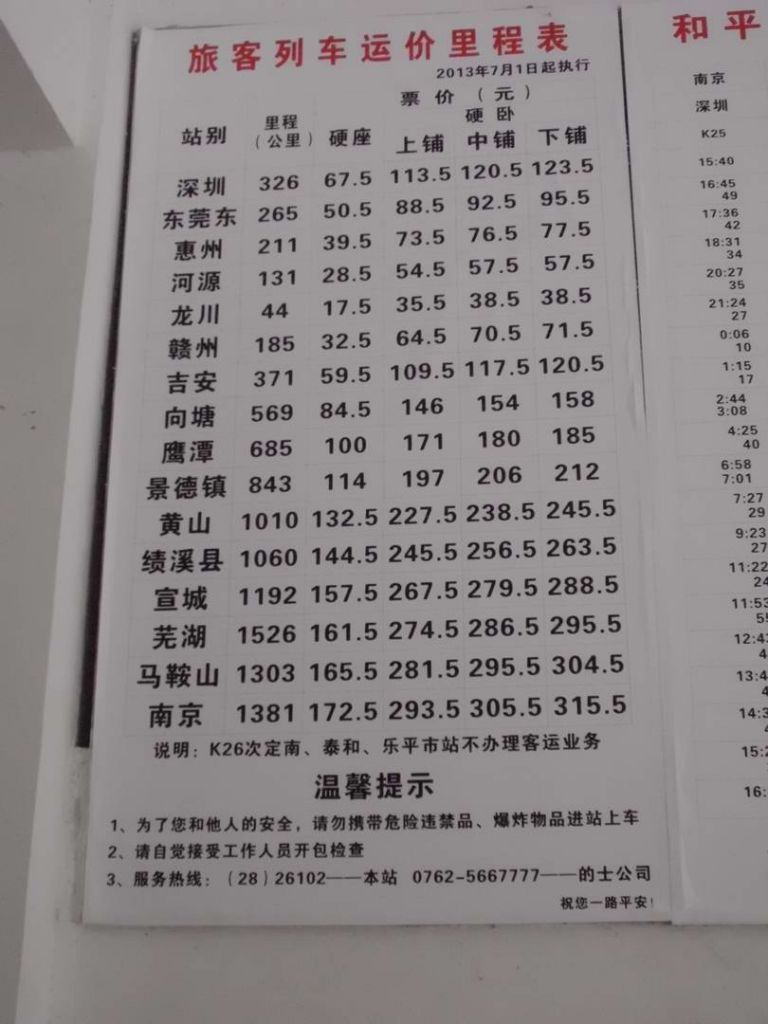 旅客列车运价里程表
2013年7月1日起执行
票价（元）
站别 里程（公里） 硬座 硬卧
上铺 中铺 下铺
深圳 326 67.5 113.5 120.5 123.5
东莞东 265 50.5 88.5 92.5 95.5
惠州 211 39.5 73.5 76.5 77.5
河源 131 28.5 54.5 57.5 57.5
龙川 44 17.5 35.5 38.5 38.5
赣州 185 32.5 64.5 70.5 71.5
吉安 371 59.5 109.5 117.5 120.5
向塘 569 84.5 146 154 158
鹰潭 685 100 171 180 185
景德镇 843 114 197 206 212
黄山 1010 132.5 227.5 238.5 245.5
绩溪县 1060 144.5 245.5 256.5 263.5
宣城 1192 157.5 267.5 279.5 288.5
芜湖 1526 161.5 274.5 286.5 295.5
马鞍山 1303 165.5 281.5 295.5 304.5
南京 1381 172.5 293.5 305.5 315.5
说明：K26次定南、泰和、乐平市站不办理客运业务
温馨提示
1、为了您和他人的安全，请勿携带危险违禁品、爆炸物品进站上车
2、请自觉接受工作人员开包检查
3、服务热线：（28）26102——本站 0762-5667777——的士公司
祝您一路平安！
和平
南京
深圳
K25
15:40
16:45
49
17:36
42
18:31
34
20:27
35
21:24
27
0:06
10
1:15
17
2:44
3:08
4:25
40
6:58
7:01
7:27
29
9:23
27
11:22
24
11:53
12:4
13:4
14:3
15:2
16: